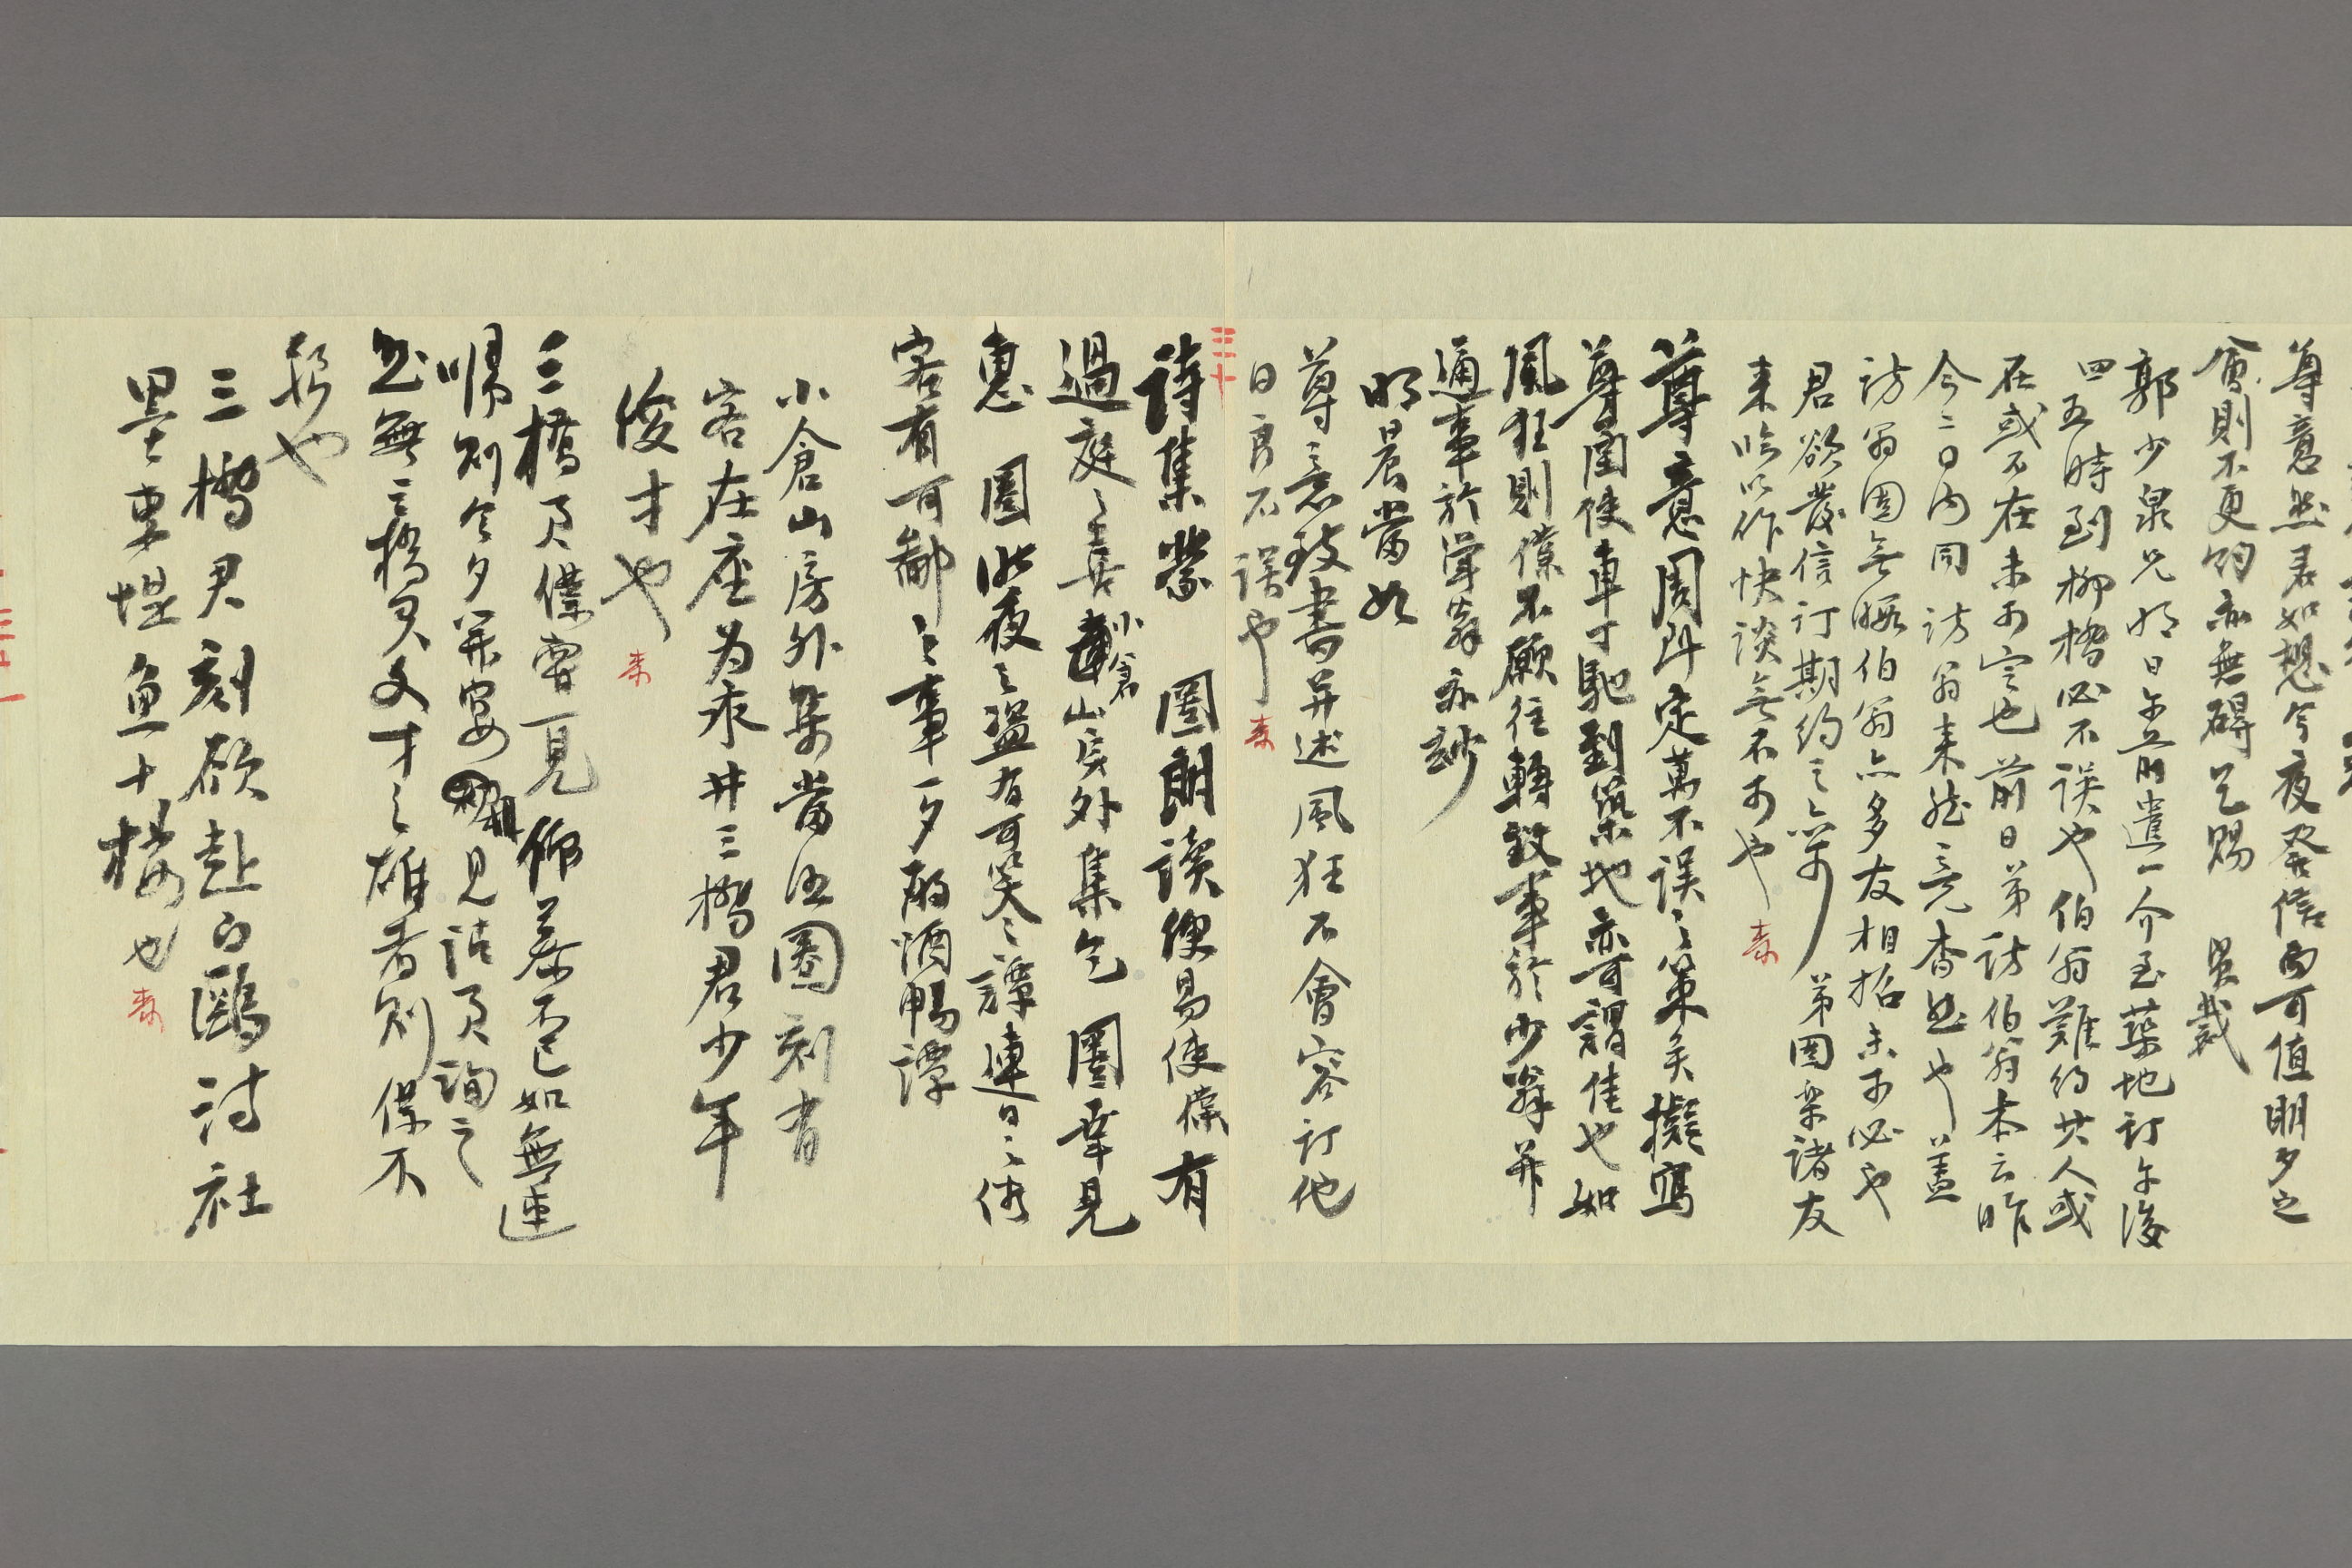 尊意然君如想今夜発信而可值明夕之
會則不更約亦無碍乞賜 思裁
郭少泉兄明日午前遣一介至築地訂午後
四五時到柳橋必不誤也伯翁難約其人或
在或不在未可定也前日弟訪伯翁本云昨
今二日內同訪翁来然竟杳然也蓋
訪翁固無暇伯翁亦多友相招未可必也
君欲發信訂期約之亦可 弟固樂諸友
来臨以作快談無不可也 桼
尊意周即定萬不誤之策矣擬寫
尊函使車丁馳到築地亦可謂佳也如
風狂則僕不願往轉致事於少翁并
通事於瀏翁亦妙
明晨當如
尊意致書并述風狂不會容訂他
日良不誤也 桼
三十
詩集蒙 圏朗讀便易使僕有
過庭之喜小倉山房外集乞 圏幸見
惠 圏昨夜之盜有可笑之譚連日之俗
客有可鄙之事一夕酌酒暢譚
小倉山房外集當伍圏刻有
客在座为永井三橋君少年
俊才也 桼
三橋君僕曾一見仰慕不已如無速
帰則今夕共宴 見諾君詢之
然無三橋君文才之雄者則僕不
能也
三橋君刻欲赴白鷗詩社
墨東堤魚十楼也 桼